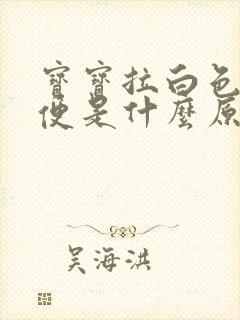 寶寶拉白色
便是什麼原
吳海洪